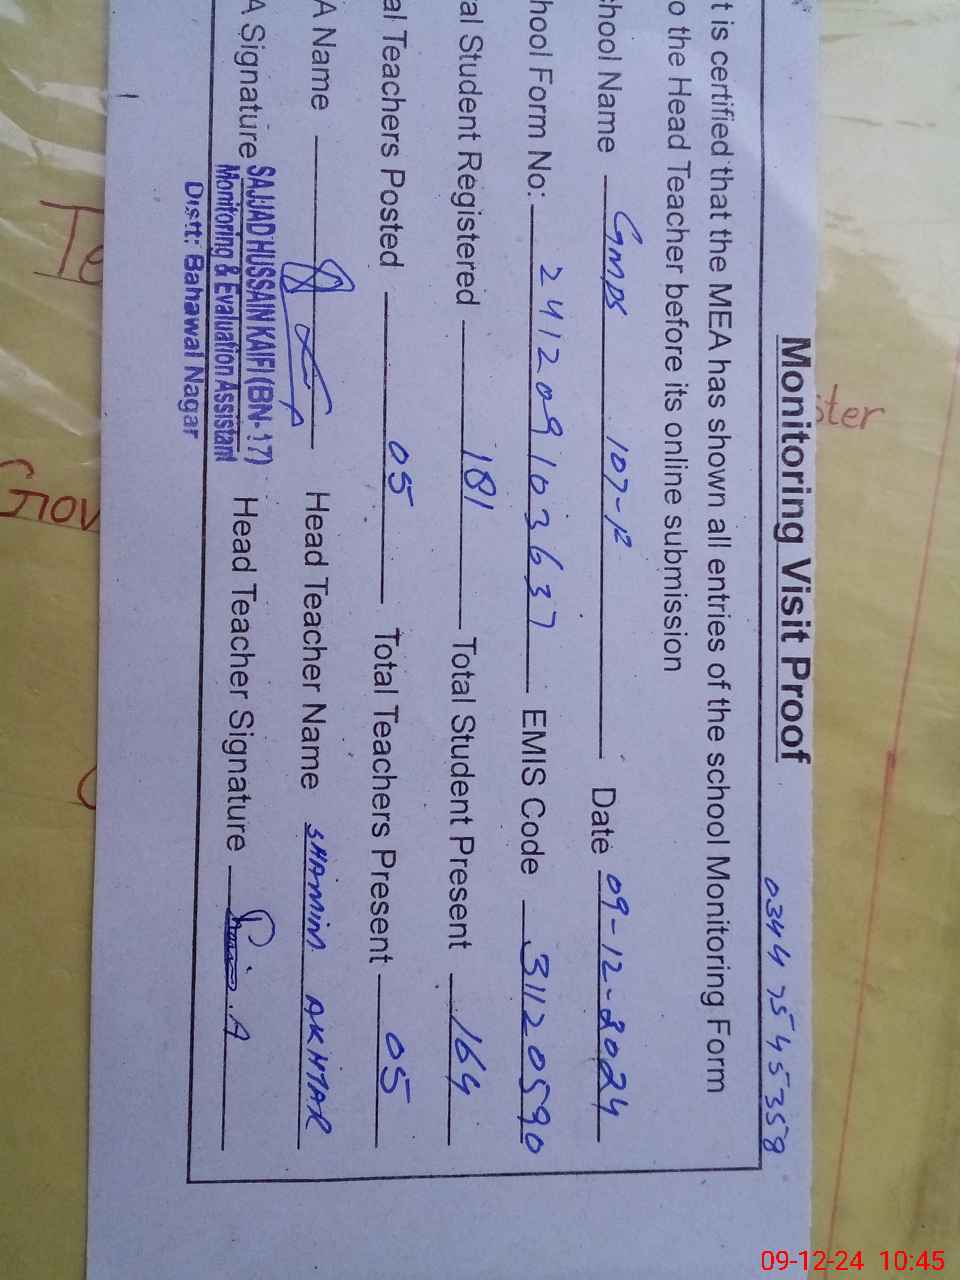 Monitoring Visit Proof
0344 7545358
t is certified that the MEA has shown all entries of the school Monitoring Form
o the Head Teacher before its online submission
chool Name GMPS 107-12 Date 09-12-2024
hool Form No: 241209103637 EMIS Code 31120590
al Student Registered 181 Total Student Present 164
al Teachers Posted 05 Total Teachers Present 05
A Name Head Teacher Name SHAMIM AKHTAR
A Signature Head Teacher Signature
SAJJAD HUSSAIN KAIFI (BN-17)
Monitoring & Evaluation Assistant
Distt: Bahawal Nagar
Te
ster
Gov
09-12-24 10:45